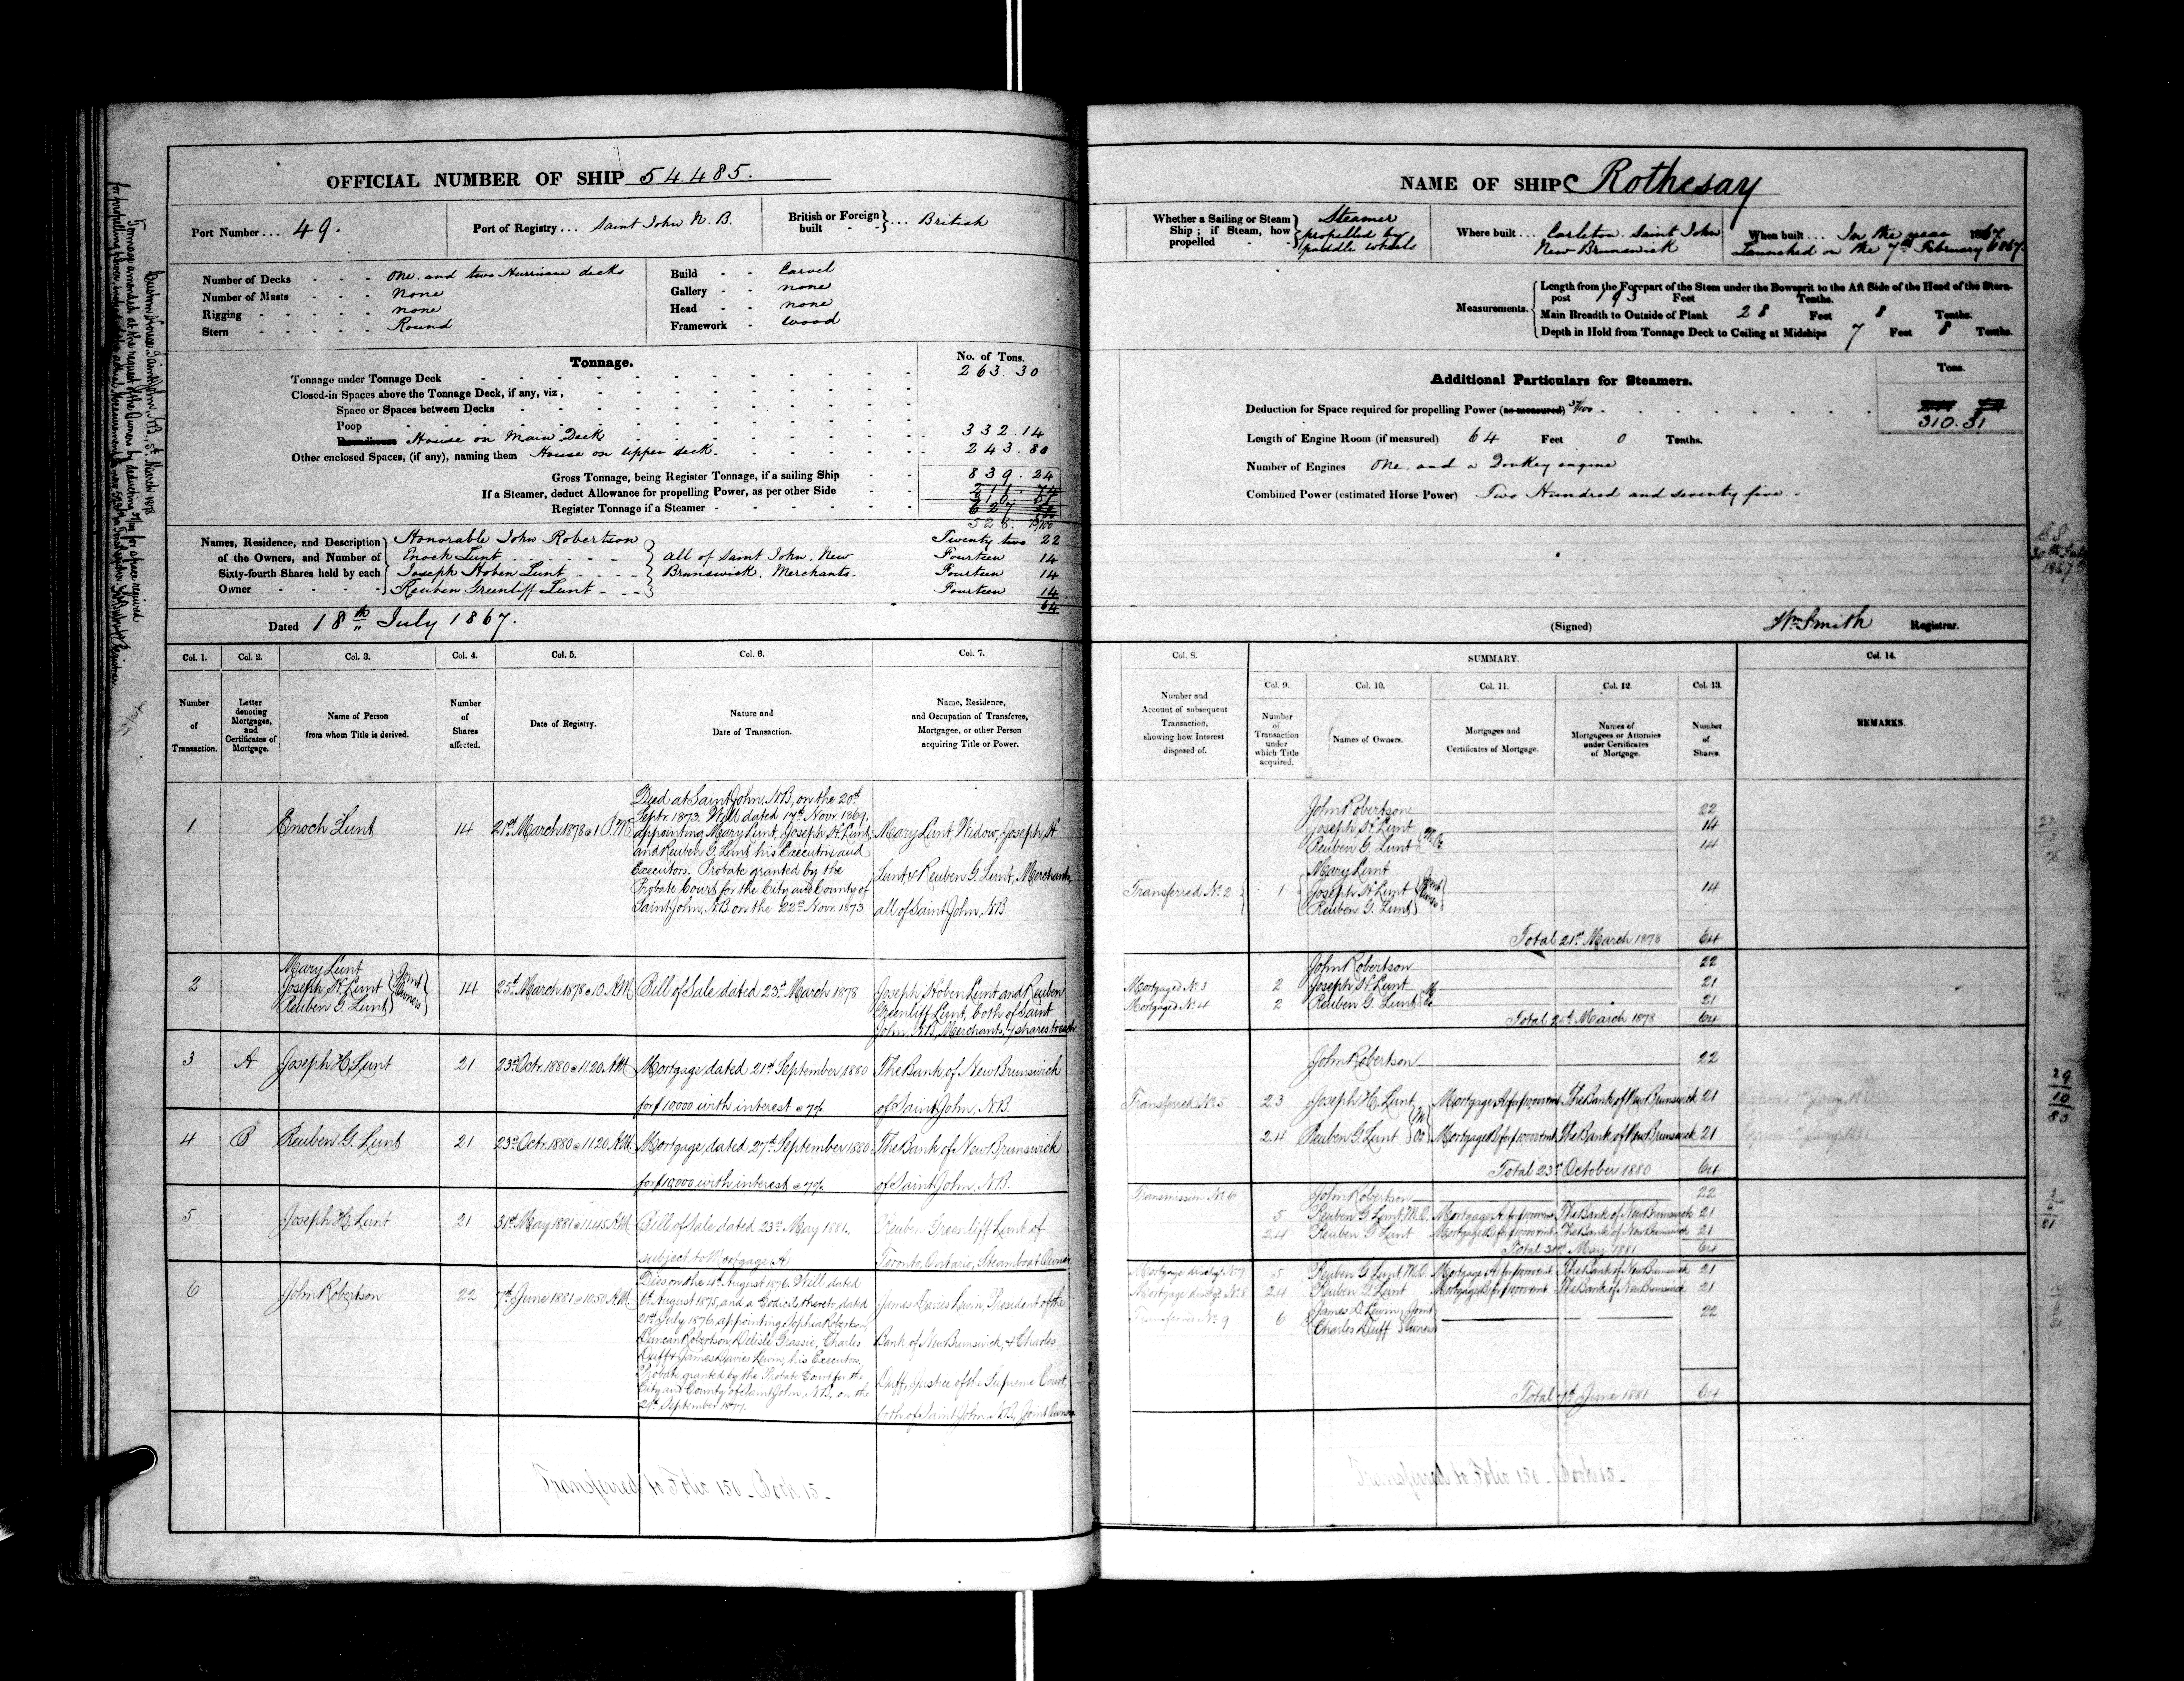 OFFICIAL NUMBER OF SHIP 54.485.
Port Number ... 49.
Port of Registry ... Saint John N. B.
British or Foreign built } ... British
Number of Decks - - - One, and two Hurricane decks
Number of Masts - - - None
Rigging - - - - - none
Stern - - - - - Round
Build - - Carvel
Gallery - - none
Head - - none
Framework - Wood
Tonnage.
No. of Tons.
Tonnage under Tonnage Deck 263.30
Closed-in Spaces above the Tonnage Deck, if any, viz,
Space or Spaces between Decks
Poop
Roundhouse House on Main Deck 332.14
Other enclosed Spaces, (if any), naming them House on upper deck. 243.80
Gross Tonnage, being Register Tonnage, if a sailing Ship 839.24
If a Steamer, deduct Allowance for propelling Power, as per other Side
Register Tonnage if a Steamer
528.
Names, Residence, and Description of the Owners, and Number of Sixty-fourth Shares held by each Owner
Honorable John Robertson Twenty two 22
Enoch Lunt Fourteen 14
Joseph Hoben Lunt Fourteen 14
Reuben Greenliff Lunt Fourteen 14
all of Saint John, New
Brunswick, Merchants.
64
Dated 18th July 1867.
Custom House, Saint John, N.B., 5th March 1878
Tonnage amended at the request of the Owners by deducting for space required
for propelling power,
NAME OF SHIP Rothesay
Whether a Sailing or Steam Ship; if Steam, how propelled - - } Steamer
propelled by
paddle wheels
Where built ... Carleton. Saint John
New Brunswick
When built ... In the year 1867
Launched on the 7th February 1867.
Measurements.
Length from the Forepart of the Stem under the Bowsprit to the Aft Side of the Head of the Stern-
post 193 Feet Tenths.
Main Breadth to Outside of Plank 28 Feet 8 Tenths.
Depth in Hold from Tonnage Deck to Ceiling at Midships 7 Feet 8 Tenths.
Additional Particulars for Steamers.
Tons.
Deduction for Space required for propelling Power (as measured) 37/100
310.51
Length of Engine Room (if measured) 64 Feet 0 Tenths.
Number of Engines One, and a Donkey engine
Combined Power (estimated Horse Power) Two Hundred and seventy five.
30th July
1867
(Signed) Wm Smith Registrar.
Col. 1. Col. 2. Col. 3. Col. 4. Col. 5. Col. 6. Col. 7.
Number of Transaction.
Letter denoting Mortgages, and Certificates of Mortgage.
Name of Person from whom Title is derived.
Number of Shares affected.
Date of Registry.
Nature and Date of Transaction.
Name, Residence, and Occupation of Transferee, Mortgagee, or other Person acquiring Title or Power.
Col. 8. SUMMARY. Col. 14.
Col. 9. Col. 10. Col. 11. Col. 12. Col. 13.
Number and Account of subsequent Transaction, showing how Interest disposed of.
Number of Transaction under which Title acquired.
Names of Owners.
Mortgages and Certificates of Mortgage.
Names of Mortgagees or Attornies under Certificates of Mortgage.
Number of Shares.
REMARKS.
1 Enoch Lunt 14 21st March 1878 @ 1 P.M.
Died at Saint John, N.B., on the 20th
Septr. 1873. Will dated 17th Novr. 1869,
appointing Mary Lunt, Joseph H. Lunt
and Reuben G. Lunt his Executrix and
Executors. Probate granted by the
Probate Court for the City and County of
Saint John, N.B. on the 22nd Novr. 1873.
Mary Lunt, Widow, Joseph H.
Lunt, & Reuben G. Lunt, Merchants,
all of Saint John, N.B.
2 Mary Lunt
Joseph H. Lunt
Reuben G. Lunt
Joint Owners
14 25th March 1878 @ 10. A.M. Bill of Sale dated 23rd March 1878
Joseph Hoben Lunt and Reuben
Greenliff Lunt, both of Saint
John, N.B., Merchants, 7 shares to each.
3 A Joseph H. Lunt 21 23rd Octr. 1880 @ 11.20. A.M. Mortgage dated 21st September 1880
for $10,000 with interest @ 7%
The Bank of New Brunswick
of Saint John, N.B.
4 B Reuben G. Lunt 21 23rd Octr. 1880 @ 11.20. A.M. Mortgage dated 27th September 1880
for $10,000 with interest @ 7%
The Bank of New Brunswick
of Saint John, N.B.
5 Joseph H. Lunt 21 31st May 1881 @ 11.45. A.M. Bill of Sale dated 23rd May 1881,
subject to Mortgage A
Reuben Greenliff Lunt of
Toronto, Ontario, Steamboat Owner
6 John Robertson 22 7th June 1881 @ 10.50. A.M.
Died on the August 1876. Will dated
August 1875, and a Codicil thereto, dated
21st July 1876, appointing Sophia Robertson,
Duncan Robertson, Delisle Grassie, Charles
Duff & James Davies Lewin, his Executors.
Probate granted by the Probate Court for the
City and County of Saint John, N.B., on the
September 1877.
James Davies Lewin, President of the
Bank of New Brunswick, & Charles
Duff, Justice of the Supreme Court,
both of Saint John, N.B., Joint Owners
Transferred to Folio 150 - Book 15 -
John Robertson 22
Joseph H. Lunt 14
Reuben G. Lunt 14
Transferred No. 2
1 Mary Lunt
Joseph H. Lunt
Reuben G. Lunt
Joint Owners 14
Total 21st March 1878 64
John Robertson 22
Mortgaged No. 3 2 Joseph H. Lunt 21
Mortgaged No. 4 2 Reuben G. Lunt 21
Total 25th March 1878 64
John Robertson 22
Transferred No. 5 2.3 Joseph H. Lunt Mortgage A for $10,000 & int The Bank of New Brunswick 21
2.4 Reuben G. Lunt Mortgage B for $10,000 & int The Bank of New Brunswick 21
Total 23rd October 1880 64
Transmission No. 6 John Robertson 22
5 Reuben G. Lunt, M.O. Mortgage A for $10,000 & int The Bank of New Brunswick 21
2.4 Reuben G. Lunt Mortgage B for $10,000 & int The Bank of New Brunswick 21
Total 31st May 1881 64
Mortgage dischgd. No. 7 5 Reuben G. Lunt, M.O. Mortgage A for $10,000 & int The Bank of New Brunswick 21
Mortgage dischgd. No. 8 2.4 Reuben G. Lunt Mortgage B for $10,000 & int The Bank of New Brunswick 21
Transferred No. 9 6 James D. Lewin
Charles Duff
Joint Owners 22
Total 7th June 1881 64
29
10
80
Transferred to Folio 150 - Book 15 -